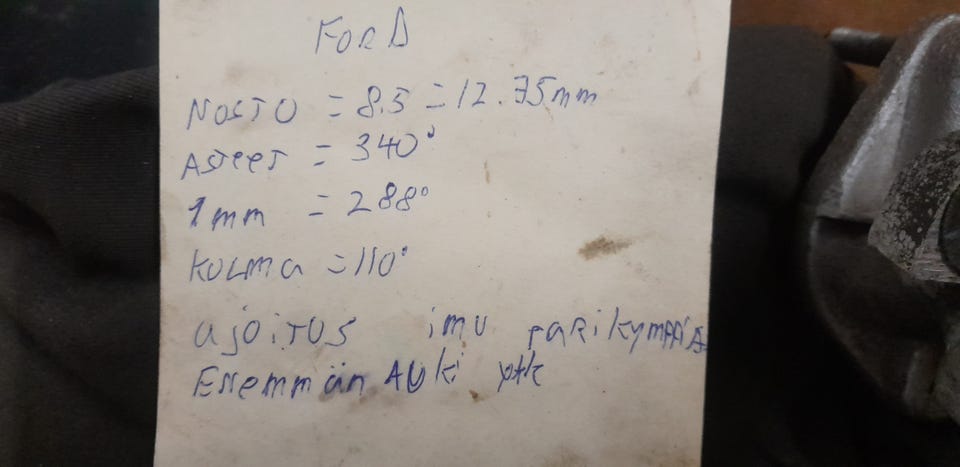 FORD
NOSTO = 8.5 = 12.75mm
ASTEET = 340°
1mm = 288°
KULMA = 110°
AJOITUS imu PARIKYMPPIÄ
ENEMMÄN AUKI YKK